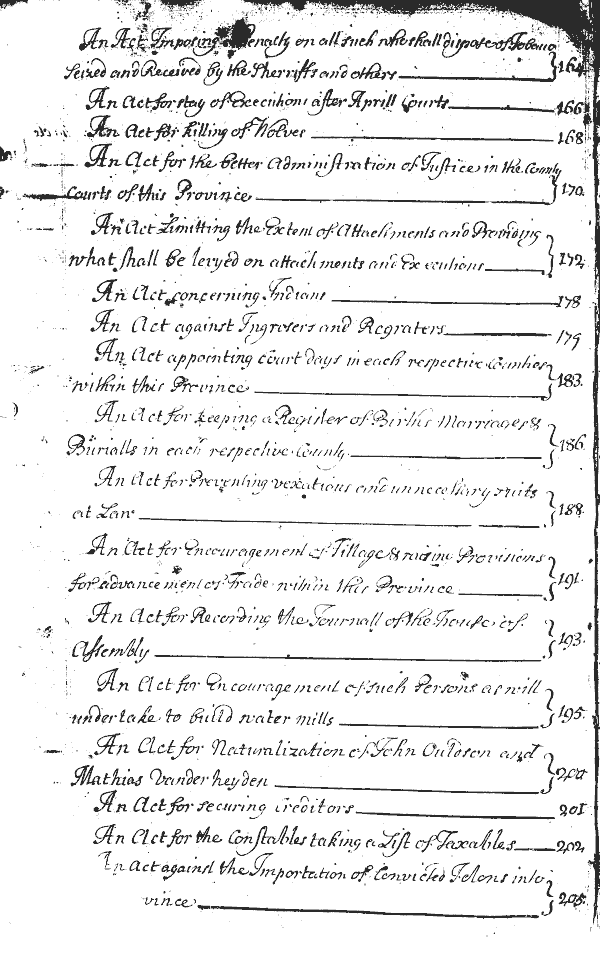 An Act Imposing a Penalty on all such who shall dispose of Tobacco
Seized and Received by the Sherriffs and others 164
An Act for stay of Executions after Aprill Courts 166
An Act for killing of Wolves 168
An Act for the better Administration of Justice in the County
Courts of this Province 170
An Act Limitting the Extent of Attachments and Providing
what shall be levyed on attachments and Executions 172
An Act concerning Indians 178
An Act against Ingrosers and Regraters 179
An Act appointing Court days in each respective Counties
within this Province 183
An Act for keeping a Register of Births Marriages &
Burialls in each respective County 186
An Act for Preventing vexatious and unnecessary suits
at Law 188
An Act for Encouragement of Tillage & raising Provisions
for advancement of Trade within this Province 191
An Act for Recording the Journall of the house of
Assembly 193
An Act for Encouragement of such Persons as will
undertake to build water mills 195
An Act for Naturalization of John Ouldson and
Mathias Vanderheyden 200
An Act for securing Creditors 201
An Act for the Constables taking a List of Taxables 202
An Act against the Importation of Convicted Felons into
vince 205